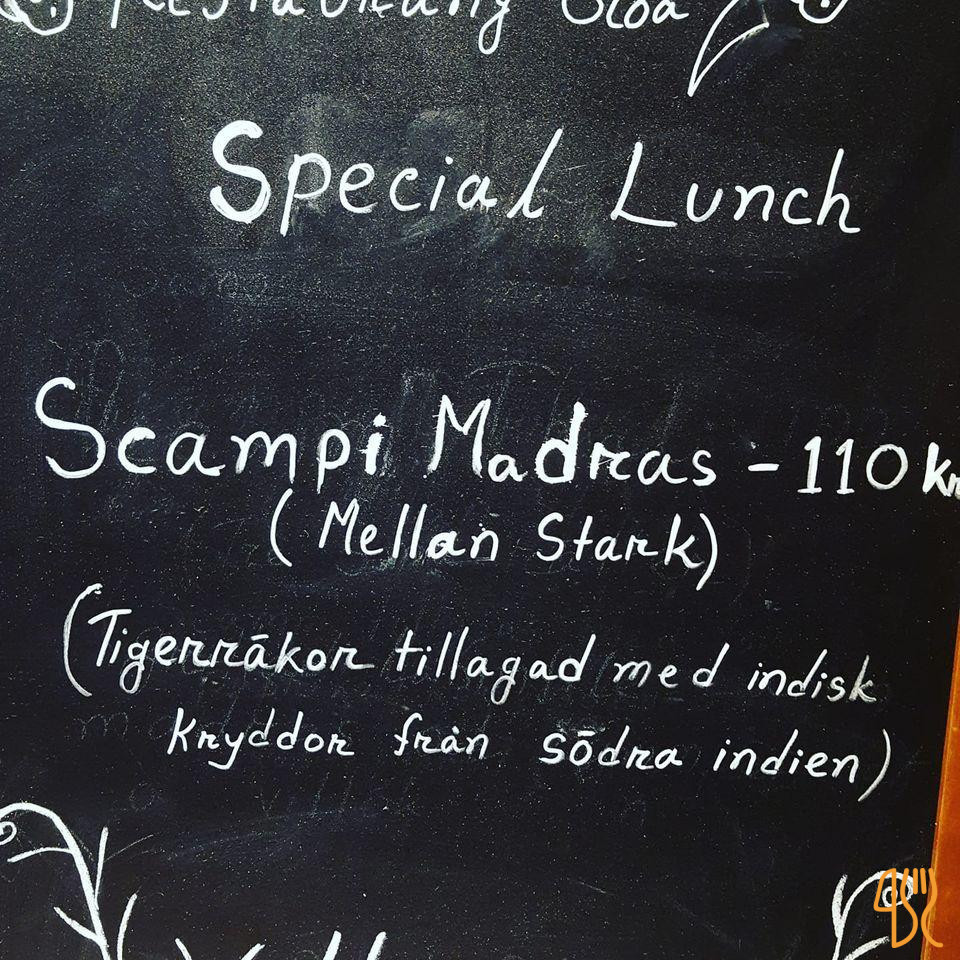 Restaurang
Special Lunch
Scampi Madras - 110 kr
(Mellan Stark)
(Tigerräkor tillagad med indisk
kryddor från södra indien)